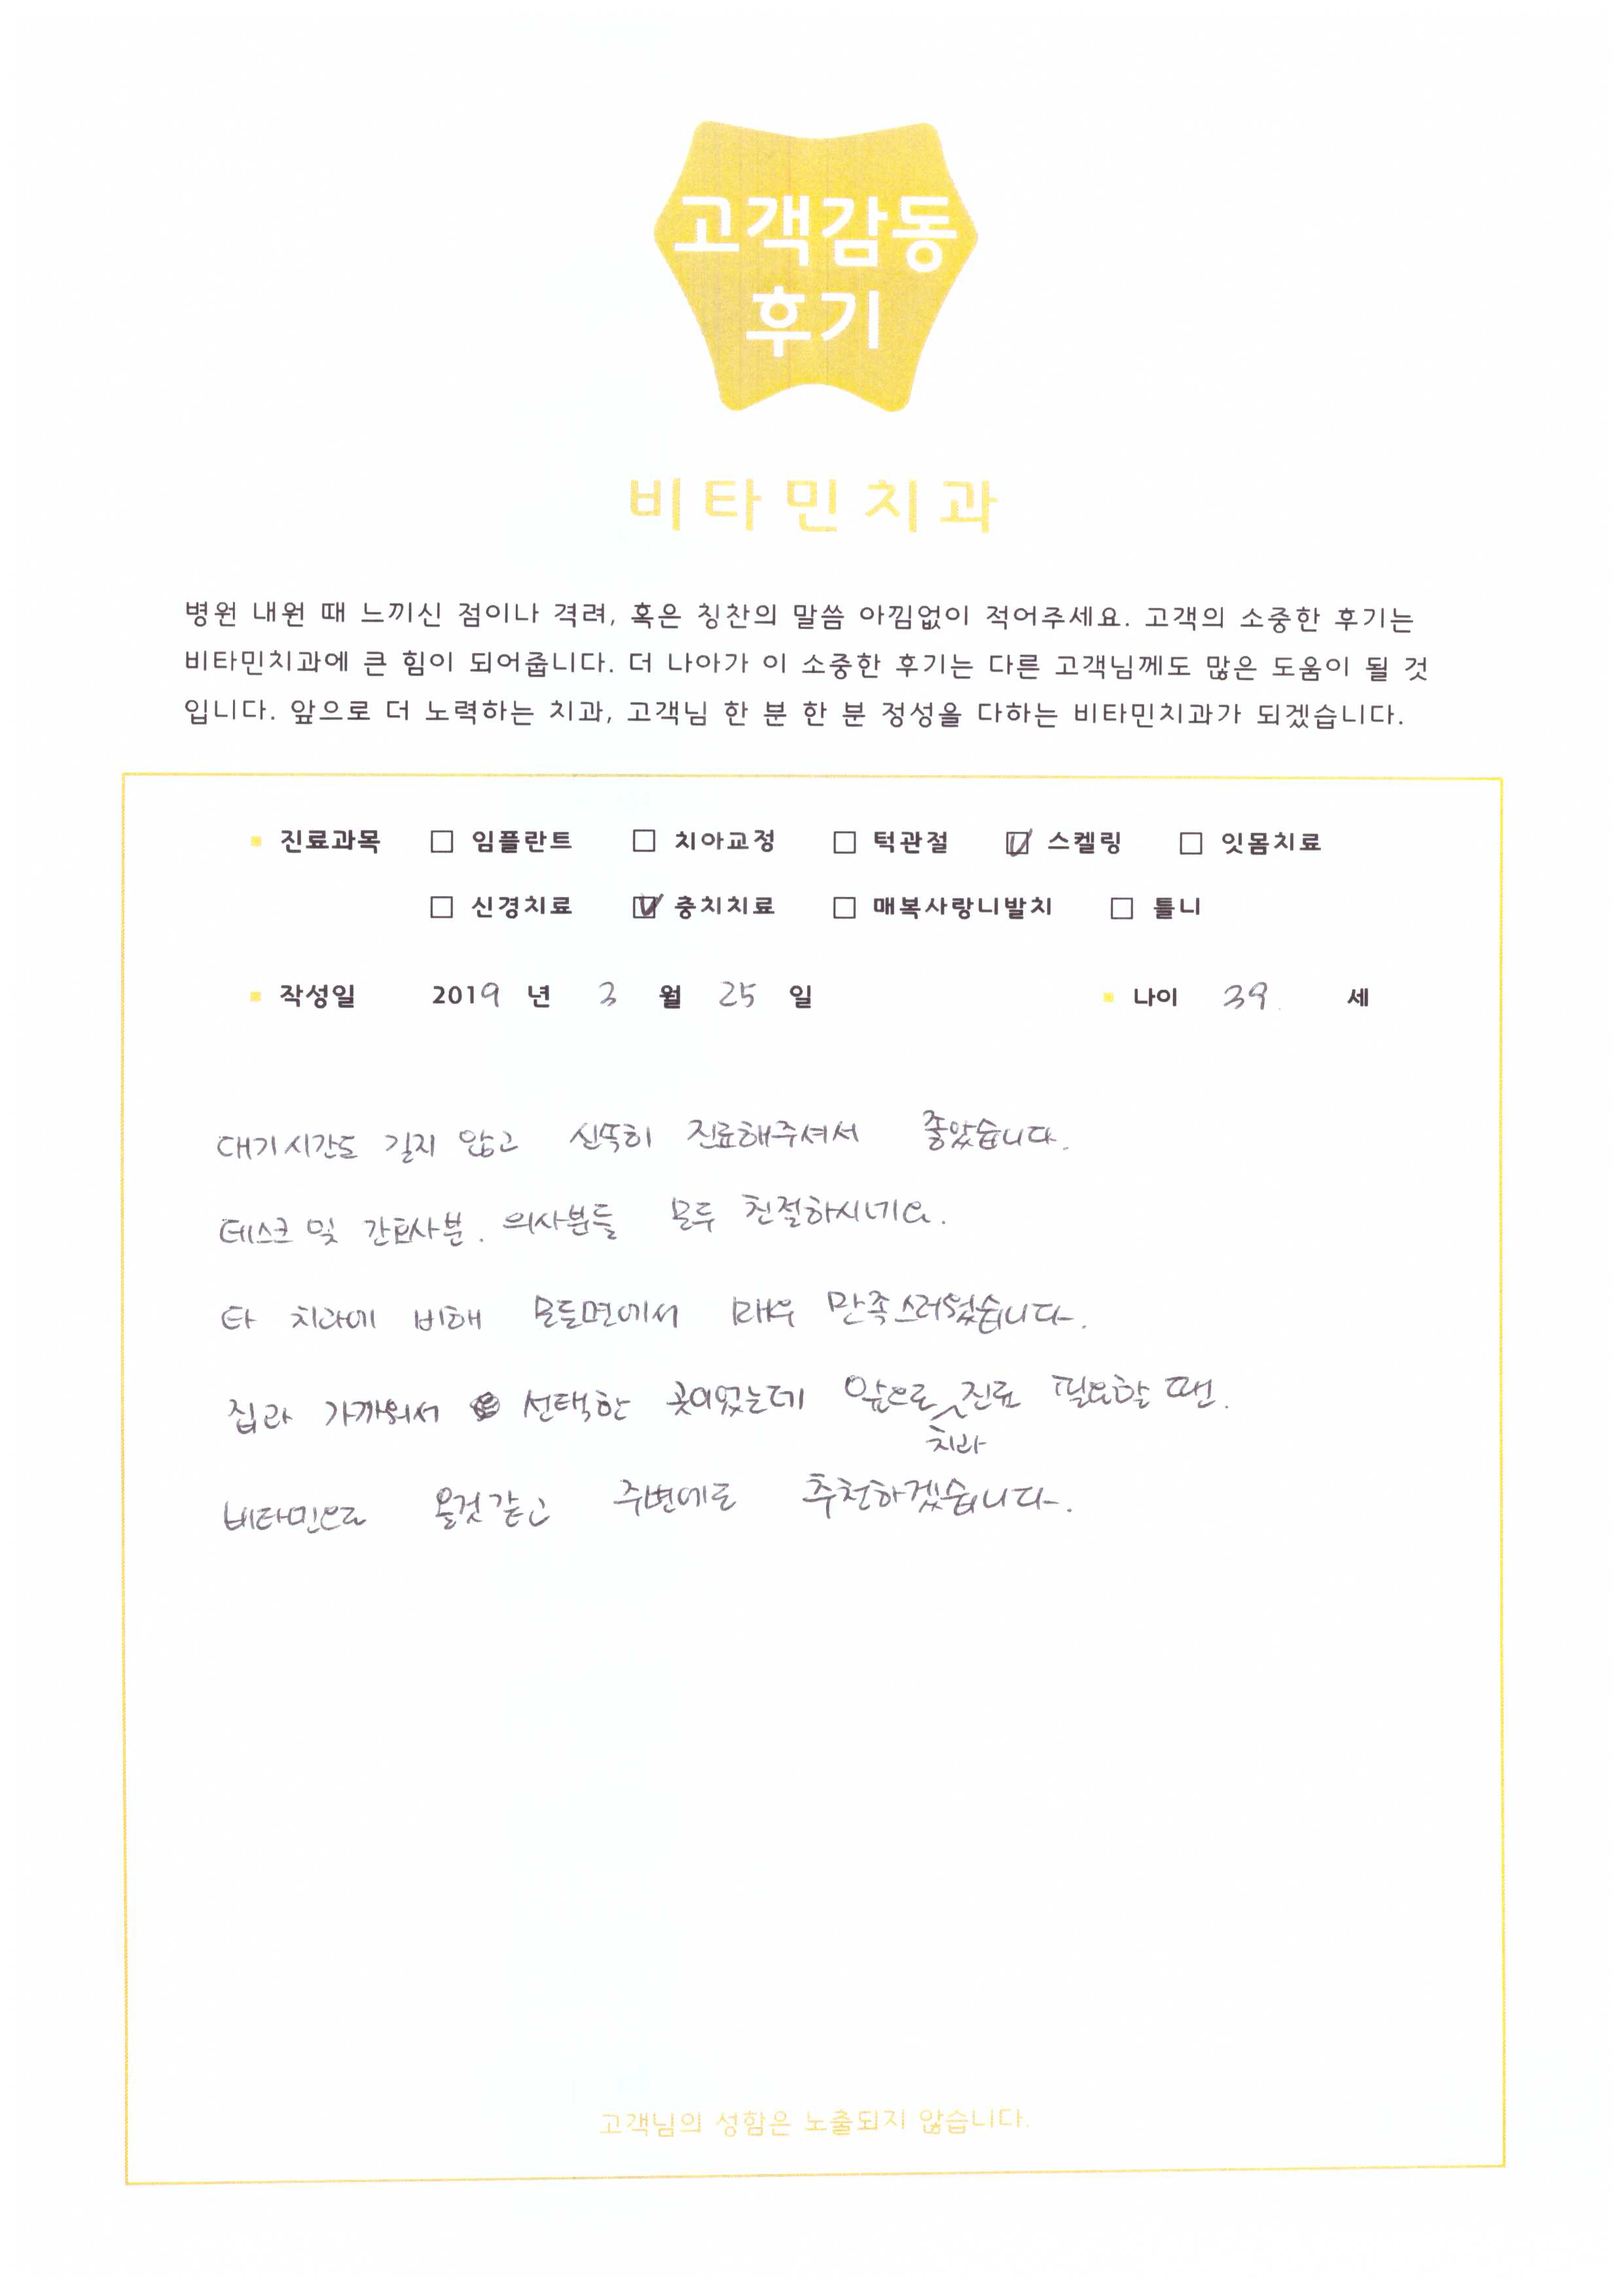 고객감동
후기
비타민치과
병원 내원 때 느끼신 점이나 격려, 혹은 칭찬의 말씀 아낌없이 적어주세요. 고객의 소중한 후기는
비타민치과에 큰 힘이 되어줍니다. 더 나아가 이 소중한 후기는 다른 고객님께도 많은 도움이 될 것
입니다. 앞으로 더 노력하는 치과, 고객님 한 분 한 분 정성을 다하는 비타민치과가 되겠습니다.
진료과목 □ 임플란트 □ 치아교정 □ 턱관절 ☑ 스켈링 □ 잇몸치료
□ 신경치료 ☑ 충치치료 □ 매복사랑니발치 □ 틀니
작성일 2019 년 3 월 25 일 나이 39. 세
대기시간도 길지 않고 신뜩히 진료해주셔서 좋았습니다.
데스크 및 간호사분. 의사분들 모두 친절하시네요.
타 치과에 비해 모든면에서 매우 만족스러웠습니다.
집과 가까워서 선택한 곳이었는데 앞으로 치과 진료 필요할 땐.
비타민으로 올것같고 주변에도 추천하겠습니다.
고객님의 성함은 노출되지 않습니다.